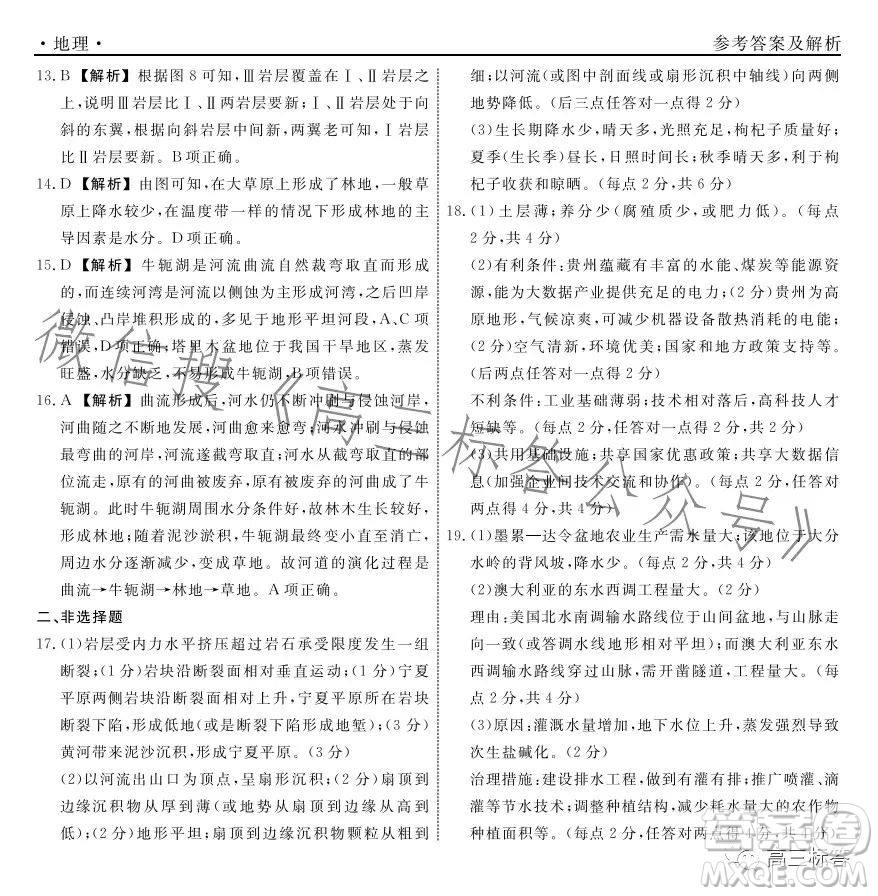 ·地理·
参考答案及解析
13. B 【解析】根据图8可知，Ⅲ岩层覆盖在Ⅰ、Ⅱ岩层之
上，说明Ⅲ岩层比Ⅰ、Ⅱ两岩层要新；Ⅰ岩层处于向
斜的东翼，根据向斜岩层中间新，两翼老可知，Ⅰ岩层
比Ⅱ岩层要新。B项正确。
14. D 【解析】由图可知，在大草原上形成了林地，一般草
原上降水较少，在温度带一样的情况下形成林地的主
导因素是水分。D项正确。
15. D 【解析】牛轭湖是河流曲流自然裁弯取直而形成
的，而连续河湾是河流以侧蚀为主形成河湾，之后凹岸
侵蚀、凸岸堆积形成的，多见于地形平坦河段，A、C项
错误，D项正确；塔里木盆地位于我国干旱地区，蒸发
旺盛，水分缺乏，不易形成牛轭湖，B项错误。
16. A 【解析】曲流形成后，河水仍不断冲刷与侵蚀河岸，
河曲随之不断地发展，河曲愈来愈弯；河水冲刷与侵蚀
最弯曲的河岸，河流遂截弯取直；河水从截弯取直的部
位流走，原有的河曲被废弃，原有被废弃的河曲成为牛
轭湖。此时牛轭湖周围水分条件好，故林木生长较好，
形成林地；随着泥沙淤积，牛轭湖最终变小直至消亡，
周边水分逐渐减少，变成草地。故河道的演化过程是
曲流→牛轭湖→林地→草地。A项正确。
二、非选择题
17. (1)岩层受内力水平挤压超过岩石承受限度发生一组
断裂；(1分)岩块沿断裂面相对垂直运动；(1分)宁夏
平原两侧岩块沿断裂面相对上升，宁夏平原所在岩块
断裂下陷，形成低地(或是断裂下陷形成地堑)；(3分)
黄河带来泥沙沉积，形成宁夏平原。(1分)
(2)以河流出山口为顶点，呈扇形沉积；(2分)扇顶到
边缘沉积物从厚到薄(或地势从扇顶到边缘由高到
低)；扇顶地形平坦；扇顶到边缘沉积物颗粒从粗到
细；以河流(或图中剖面线或扇形沉积中轴线)向两侧
地势降低。(后三点任答对一点得2分)
(3)生长期降水少，晴天多，光照充足，枸杞子质量好；
夏季(生长季)昼长，日照时间长；秋季晴天多，利于枸
杞子收获和晾晒。(每点2分，共6分)
18. (1)土层薄；养分少(腐殖质少，或肥力低)。(每点
2分，共4分)
(2)有利条件：贵州蕴藏有丰富的水能、煤炭等能源资
源，能为大数据产业提供充足的电力；(2分)贵州为高
原地形，气候凉爽，可减少机器设备散热消耗的电能；
(2分)空气清新，环境优美；国家(地方)政策支持等。
(后两点任答对一点得2分)
不利条件：工业基础薄弱；技术相对落后，高科技人才
短缺等。(每点2分，任答对一点得2分)
(3)共用基础设施；共享国家优惠政策；共享大数据信
息(加强企业间技术交流和协作)。(每点2分，任答对
两点得4分，共4分)
19. (1)墨累—达令盆地农业生产需水量大；该地位于大分
水岭的背风坡，降水少。(每点2分，共4分)
(2)澳大利亚的东水西调工程量大。(2分)
理由：美国北水南调输水路线位于山间盆地，与山脉走
向一致(或答调水线地形相对平坦)；而澳大利亚东水
西调输水路线穿过山脉，需开凿隧道，工程量大。(每
点2分，共4分)
(3)原因：灌溉水量增加，地下水位上升；蒸发强烈，导致
次生盐碱化。(每点2分，共4分)
治理措施：建设排水工程，做到有灌有排；推广喷灌、滴
灌等节水技术；调整种植结构，减少耗水量大的农作物
种植面积等。(每点2分，任答对两点得4分，共4分)
微信搜《高三标答公众号》
答案圈
MXQE.COM
高三标答